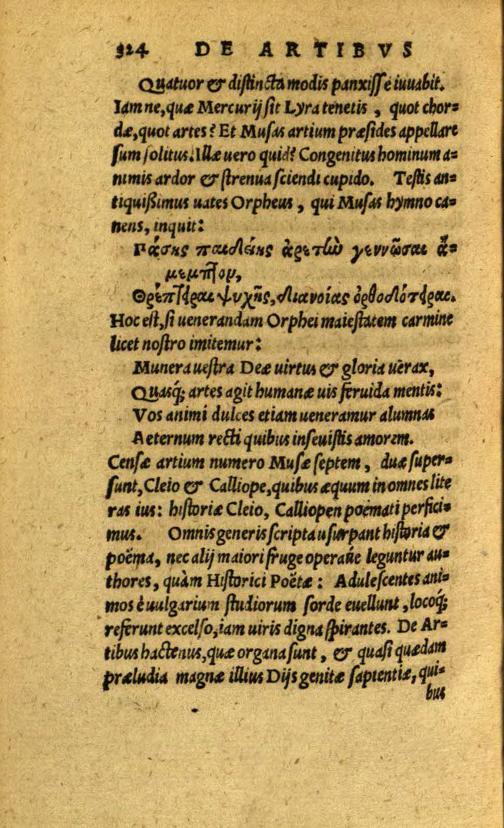 324 DE ARTIBVS
Quatuor & distincta modis panxisse iuuabit.
Iamne, quæ Mercurij sit Lyra tenetis, quot chor=
dæ, quot artes? Et Musas artium præsides appellare
sum solitus. Illæ uero quid? Congenitus hominum a=
nimis ardor & strenua sciendi cupido. Testis an=
tiquißimus uates Orpheus, qui Musas hymno ca=
nens, inquit:
Πάσης παιδείης ἀρετὼ γεννῶσαι ἄ=
μεμπτον,
Θρέπτειραι ψυχῆς, διανοίας ὀρθοδότειραι.
Hoc est, si uenerandam Orphei maiestatem carmine
licet nostro imitemur:
Munera uestra Deæ uirtus & gloria uêrax,
Quasq; artes agit humanæ uis feruida mentis:
Vos animi dulces etiam ueneramur alumnas
Aeternum recti quibus inseuistis amorem.
Censæ artium numero Musæ septem, duæ super=
sunt, Cleio & Calliope, quibus æquum in omnes lite
ras ius: historiæ Cleio, Calliopen poëmati perfici=
mus. Omnis generis scripta usurpant historia &
poëma, nec alij maiori fruge operaúe leguntur au=
thores, quàm Historici Poëtæ: Adulescentes ani=
mos è uulgarium studiorum sorde euellunt, locoq;
referunt excelso, iam uiris digna spirantes. De Ar=
tibus hactenus, quæ organa sunt, & quasi quædam
præludia magnæ illius Dijs genitæ sapientiæ, qui=
bus